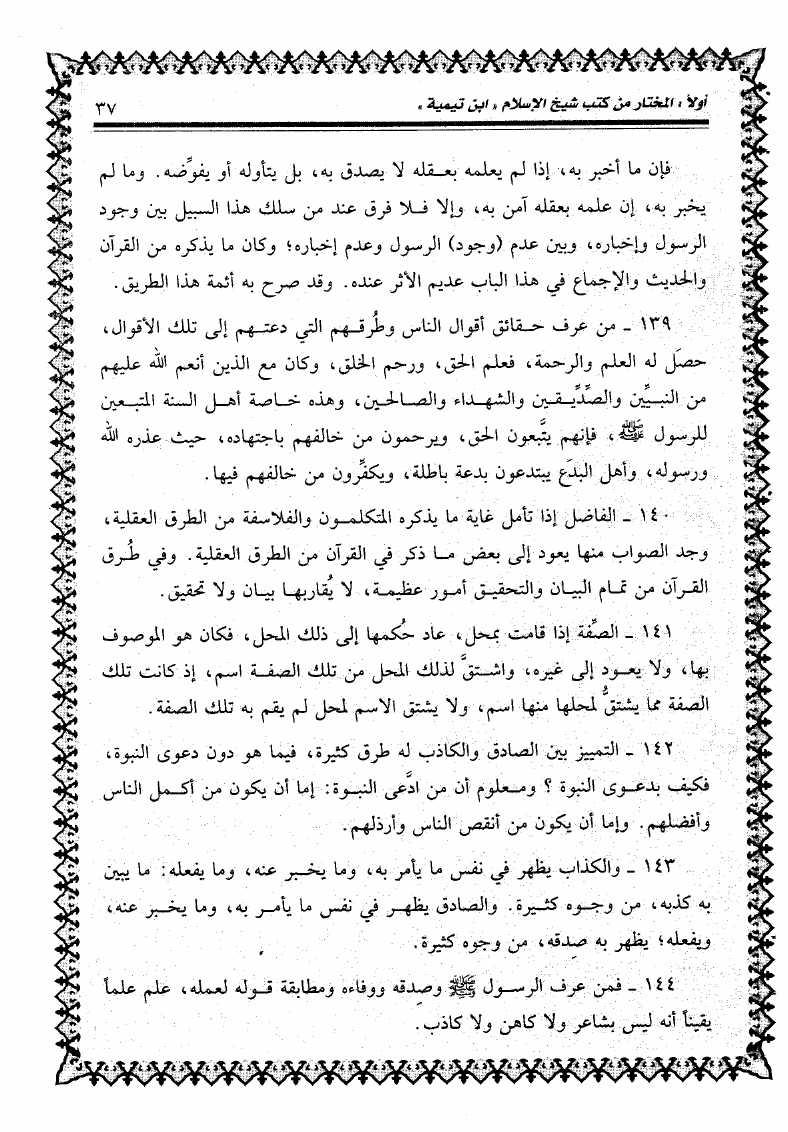 أولاً : المختار من كتب شيخ الإسلام « ابن تيمية »
٣٧
فإن ما أخبر به، إذا لم يعلمه بعقله لا يصدق به، بل يتأوله أو يفوِّضه. وما لم
يخبر به، إن علمه بعقله آمن به، وإلا فلا فرق عند من سلك هذا السبيل بين وجود
الرسول وإخباره، وبين عدم (وجود) الرسول وعدم إخباره؛ وكان ما يذكره من القرآن
والحديث والإجماع في هذا الباب عديم الأثر عنده. وقد صرح به أئمة هذا الطريق.
١٣٩ ـ من عرف حقائق أقوال الناس وطُرقهم التي دعتهم إلى تلك الأقوال،
حصَل له العلم والرحمة، فعلم الحق، ورحم الخلق، وكان مع الذين أنعم الله عليهم
من النبيِّين والصدِّيقين والشهداء والصالحين، وهذه خاصة أهل السنة المتبعين
للرسول ﷺ، فإنهم يتَّبعون الحق، ويرحمون من خالفهم باجتهاده، حيث عذره الله
ورسوله، وأهل البدَع يبتدعون بدعة باطلة، ويكفِّرون من خالفهم فيها.
١٤٠ ـ الفاضل إذا تأمل غاية ما يذكره المتكلمون والفلاسفة من الطرق العقلية،
وجد الصواب منها يعود إلى بعض ما ذكر في القرآن من الطرق العقلية. وفي طُرق
القرآن من تمام البيان والتحقيق أمور عظيمة، لا يُقاربها بيان ولا تحقيق.
١٤١ ـ الصِّفة إذا قامت بمحل، عاد حُكمها إلى ذلك المحل، فكان هو الموصوف
بها، ولا يعود إلى غيره، واشتقَّ لذلك المحل من تلك الصفة اسم، إذ كانت تلك
الصفة مما يشتقُّ لمحلها منها اسم، ولا يشتق الاسم لمحل لم يقم به تلك الصفة.
١٤٢ ـ التمييز بين الصادق والكاذب له طرق كثيرة، فيما هو دون دعوى النبوة،
فكيف بدعوى النبوة ؟ ومعلوم أن من ادَّعى النبوة: إما أن يكون من أكمل الناس
وأفضلهم. وإما أن يكون من أنقص الناس وأرذلهم.
١٤٣ ـ والكذاب يظهر في نفس ما يأمر به، وما يخبر عنه، وما يفعله: ما يبين
به كذبه، من وجوه كثيرة. والصادق يظهر في نفس ما يأمر به، وما يخبر عنه،
ويفعله؛ يظهر به صِدقه، من وجوه كثيرة.
١٤٤ ـ فمن عرف الرسول ﷺ وصِدقه ووفاءه ومطابقة قوله لعمله، علم علماً
يقيناً أنه ليس بشاعر ولا كاهن ولا كاذب.